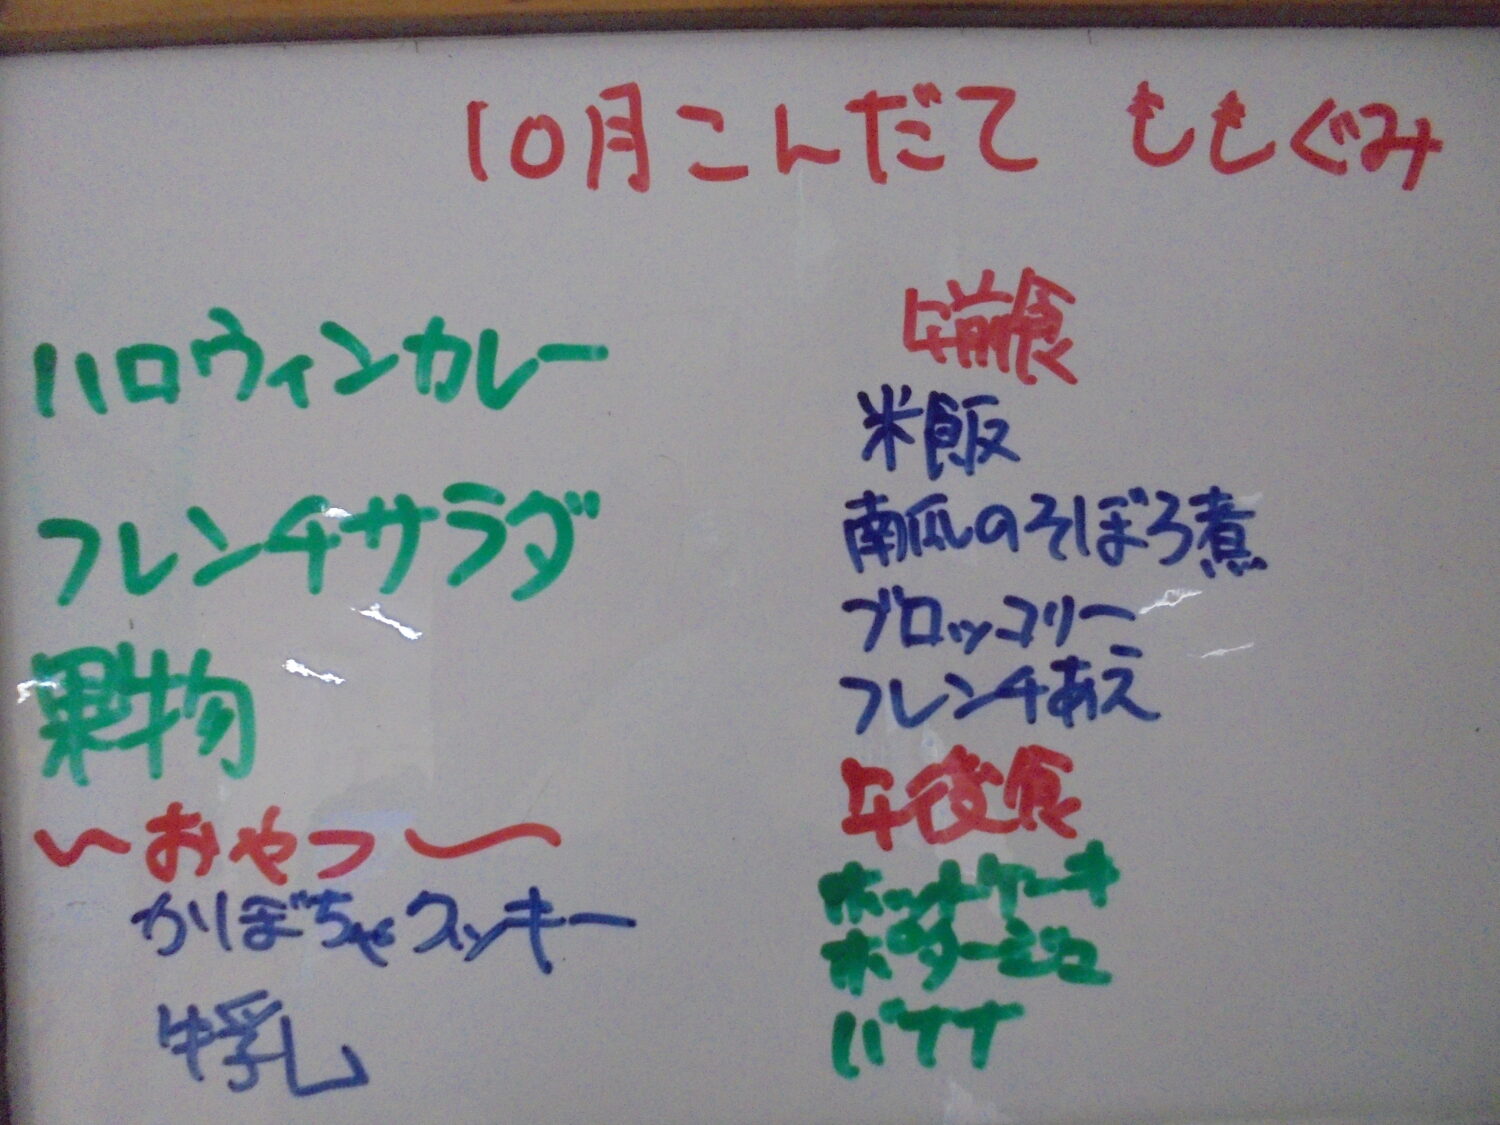 10月こんだて ももぐみ
ハロウィンカレー
フレンチサラダ
果物
〜おやつ〜
かぼちゃクッキー
牛乳
午前食
米飯
南瓜のそぼろ煮
ブロッコリー
フレンチあえ
午後食
ホットケーキ
ポタージュ
バナナ